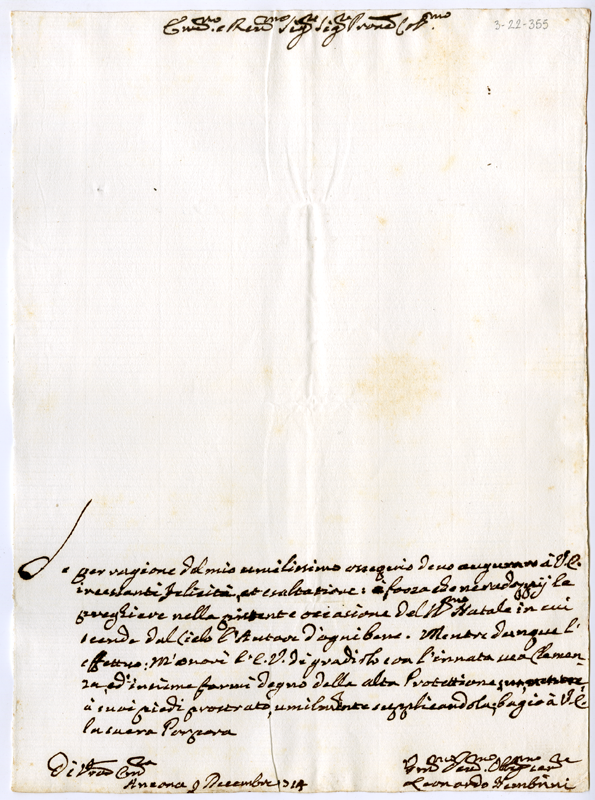 Em.mo e Rev.mo Sig.re Sig.re Pron.e Col.mo
3-22-355
Se per ragione del mio umilissimo ossequio devo augurare à V.E.
incessanti felicità, et esaltatione: è forza ch'io ne radoppij le
preghiere nella p̃nte occasione del S.mo Natale in cui
scende dal Cielo l'Autore d'ogni bene. Mentre dunque l'
effettuo: M'onori l'E.V. di gradirlo con l'innata sua Clemen-
za, ed insieme farmi degno della alta Protettione
à suoi piedi prostrato, umilm̃ente supplicandola, bagio à V.E.
la sacra Porpora
Di V.ra Em.za
Ancona 9 Decembre 714
Um.mo Dev.mo Obl.mo Ser.re
Leonardo